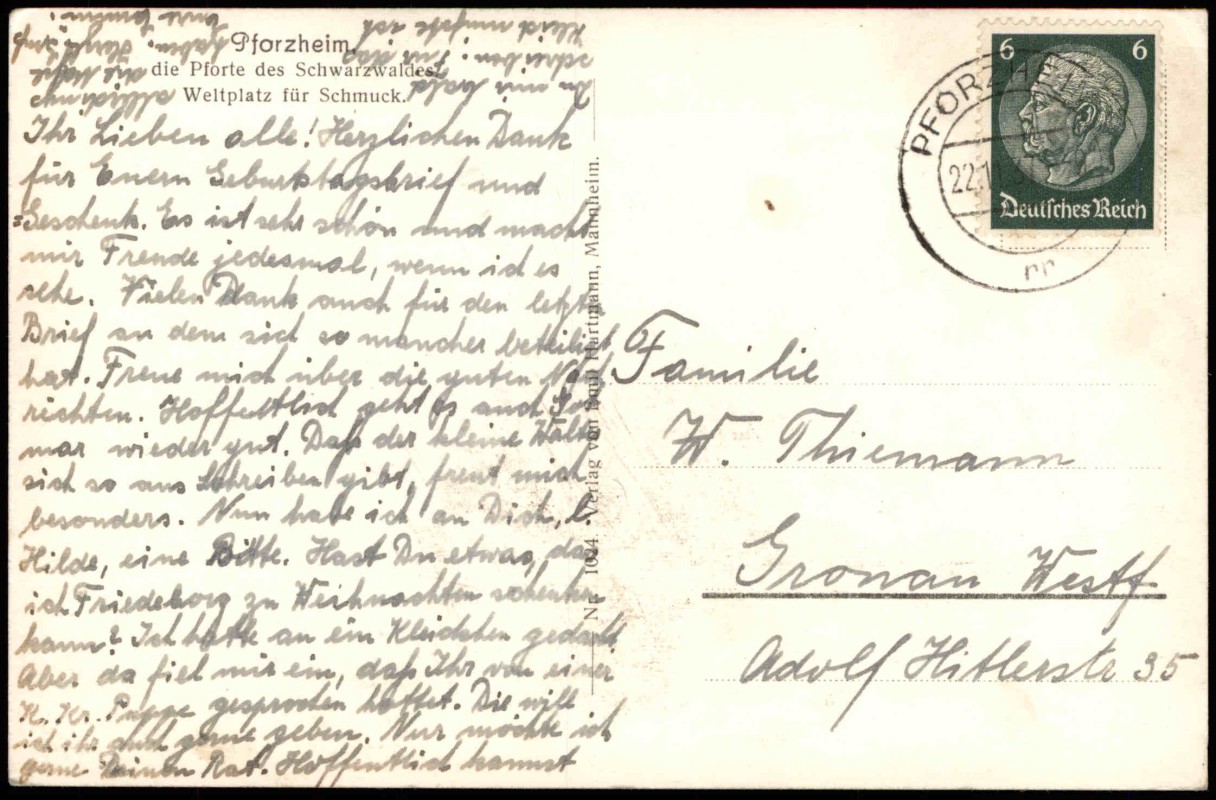 Pforzheim,
die Pforte des Schwarzwaldes!
Weltplatz für Schmuck.
Ihr Lieben alle! Herzlichen Dank
für Euern Geburtstagsbrief und
=Geschenk. Es ist sehr schön und macht
mir Freude jedesmal, wenn ich es
sehe. Vielen Dank auch für den letzten
Brief an dem sich so mancher beteiligt
hat. Freue mich über die guten Nach
richten. Hoffentlich geht es auch
mar wieder gut. Daß der kleine Walter
sich so ans Schreiben gibt, freut mich
besonders. Nun habe ich an Dich, l.
Hilde, eine Bitte. Hast Du etwas, das
ich Friedeborg zu Weihnachten schenken
kann? Ich hatte an ein Kleidchen gedacht
Aber da fiel mir ein, daß Ihr von einer
K. Kr. Puppe gesprochen hattet. Die will
ich ihr auch gerne geben. Nur möchte ich
gerne Deinen Rat. Hoffentlich kannst
Du mir bald
schreiben.
Kleid
Nr. 1024. Verlag von Emil Hartmann, Mannheim.
6 6
Deutsches Reich
PFORZHEIM
22.11.
Familie
W. Thiemann
Gronau Westf.
Adolf Hitlerstr 35